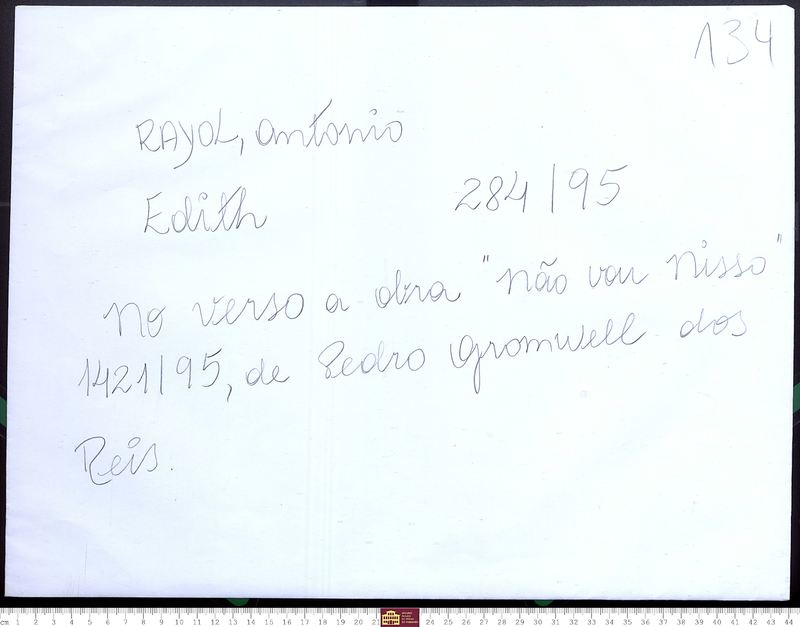 134
RAYOL, Antonio
Edith 284/95
No verso a obra "Não vou nisso"
1421/95, de Pedro Gromwell dos
Reis.
cm 1 2 3 4 5 6 7 8 9 10 11 12 13 14 15 16 17 18 19 20 21 24 26 27 28 29 30 31 32 33 34 35 36 37 38 39 40 41 42 43 44